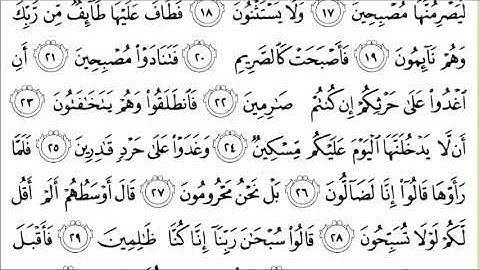 لَيَصْرِمُنَّهَا مُصْبِحِينَ ١٧ وَلَا يَسْتَثْنُونَ ١٨ فَطَافَ عَلَيْهَا طَائِفٌ مِّن رَّبِّكَ
وَهُمْ نَائِمُونَ ١٩ فَأَصْبَحَتْ كَالصَّرِيمِ ٢٠ فَتَنَادَوْا مُصْبِحِينَ ٢١ أَنِ
اغْدُوا عَلَىٰ حَرْثِكُمْ إِن كُنتُمْ صَارِمِينَ ٢٢ فَانطَلَقُوا وَهُمْ يَتَخَافَتُونَ ٢٣
أَن لَّا يَدْخُلَنَّهَا الْيَوْمَ عَلَيْكُم مِّسْكِينٌ ٢٤ وَغَدَوْا عَلَىٰ حَرْدٍ قَادِرِينَ ٢٥ فَلَمَّا
رَأَوْهَا قَالُوا إِنَّا لَضَالُّونَ ٢٦ بَلْ نَحْنُ مَحْرُومُونَ ٢٧ قَالَ أَوْسَطُهُمْ أَلَمْ أَقُل
لَّكُمْ لَوْلَا تُسَبِّحُونَ ٢٨ قَالُوا سُبْحَانَ رَبِّنَا إِنَّا كُنَّا ظَالِمِينَ ٢٩ فَأَقْبَلَ